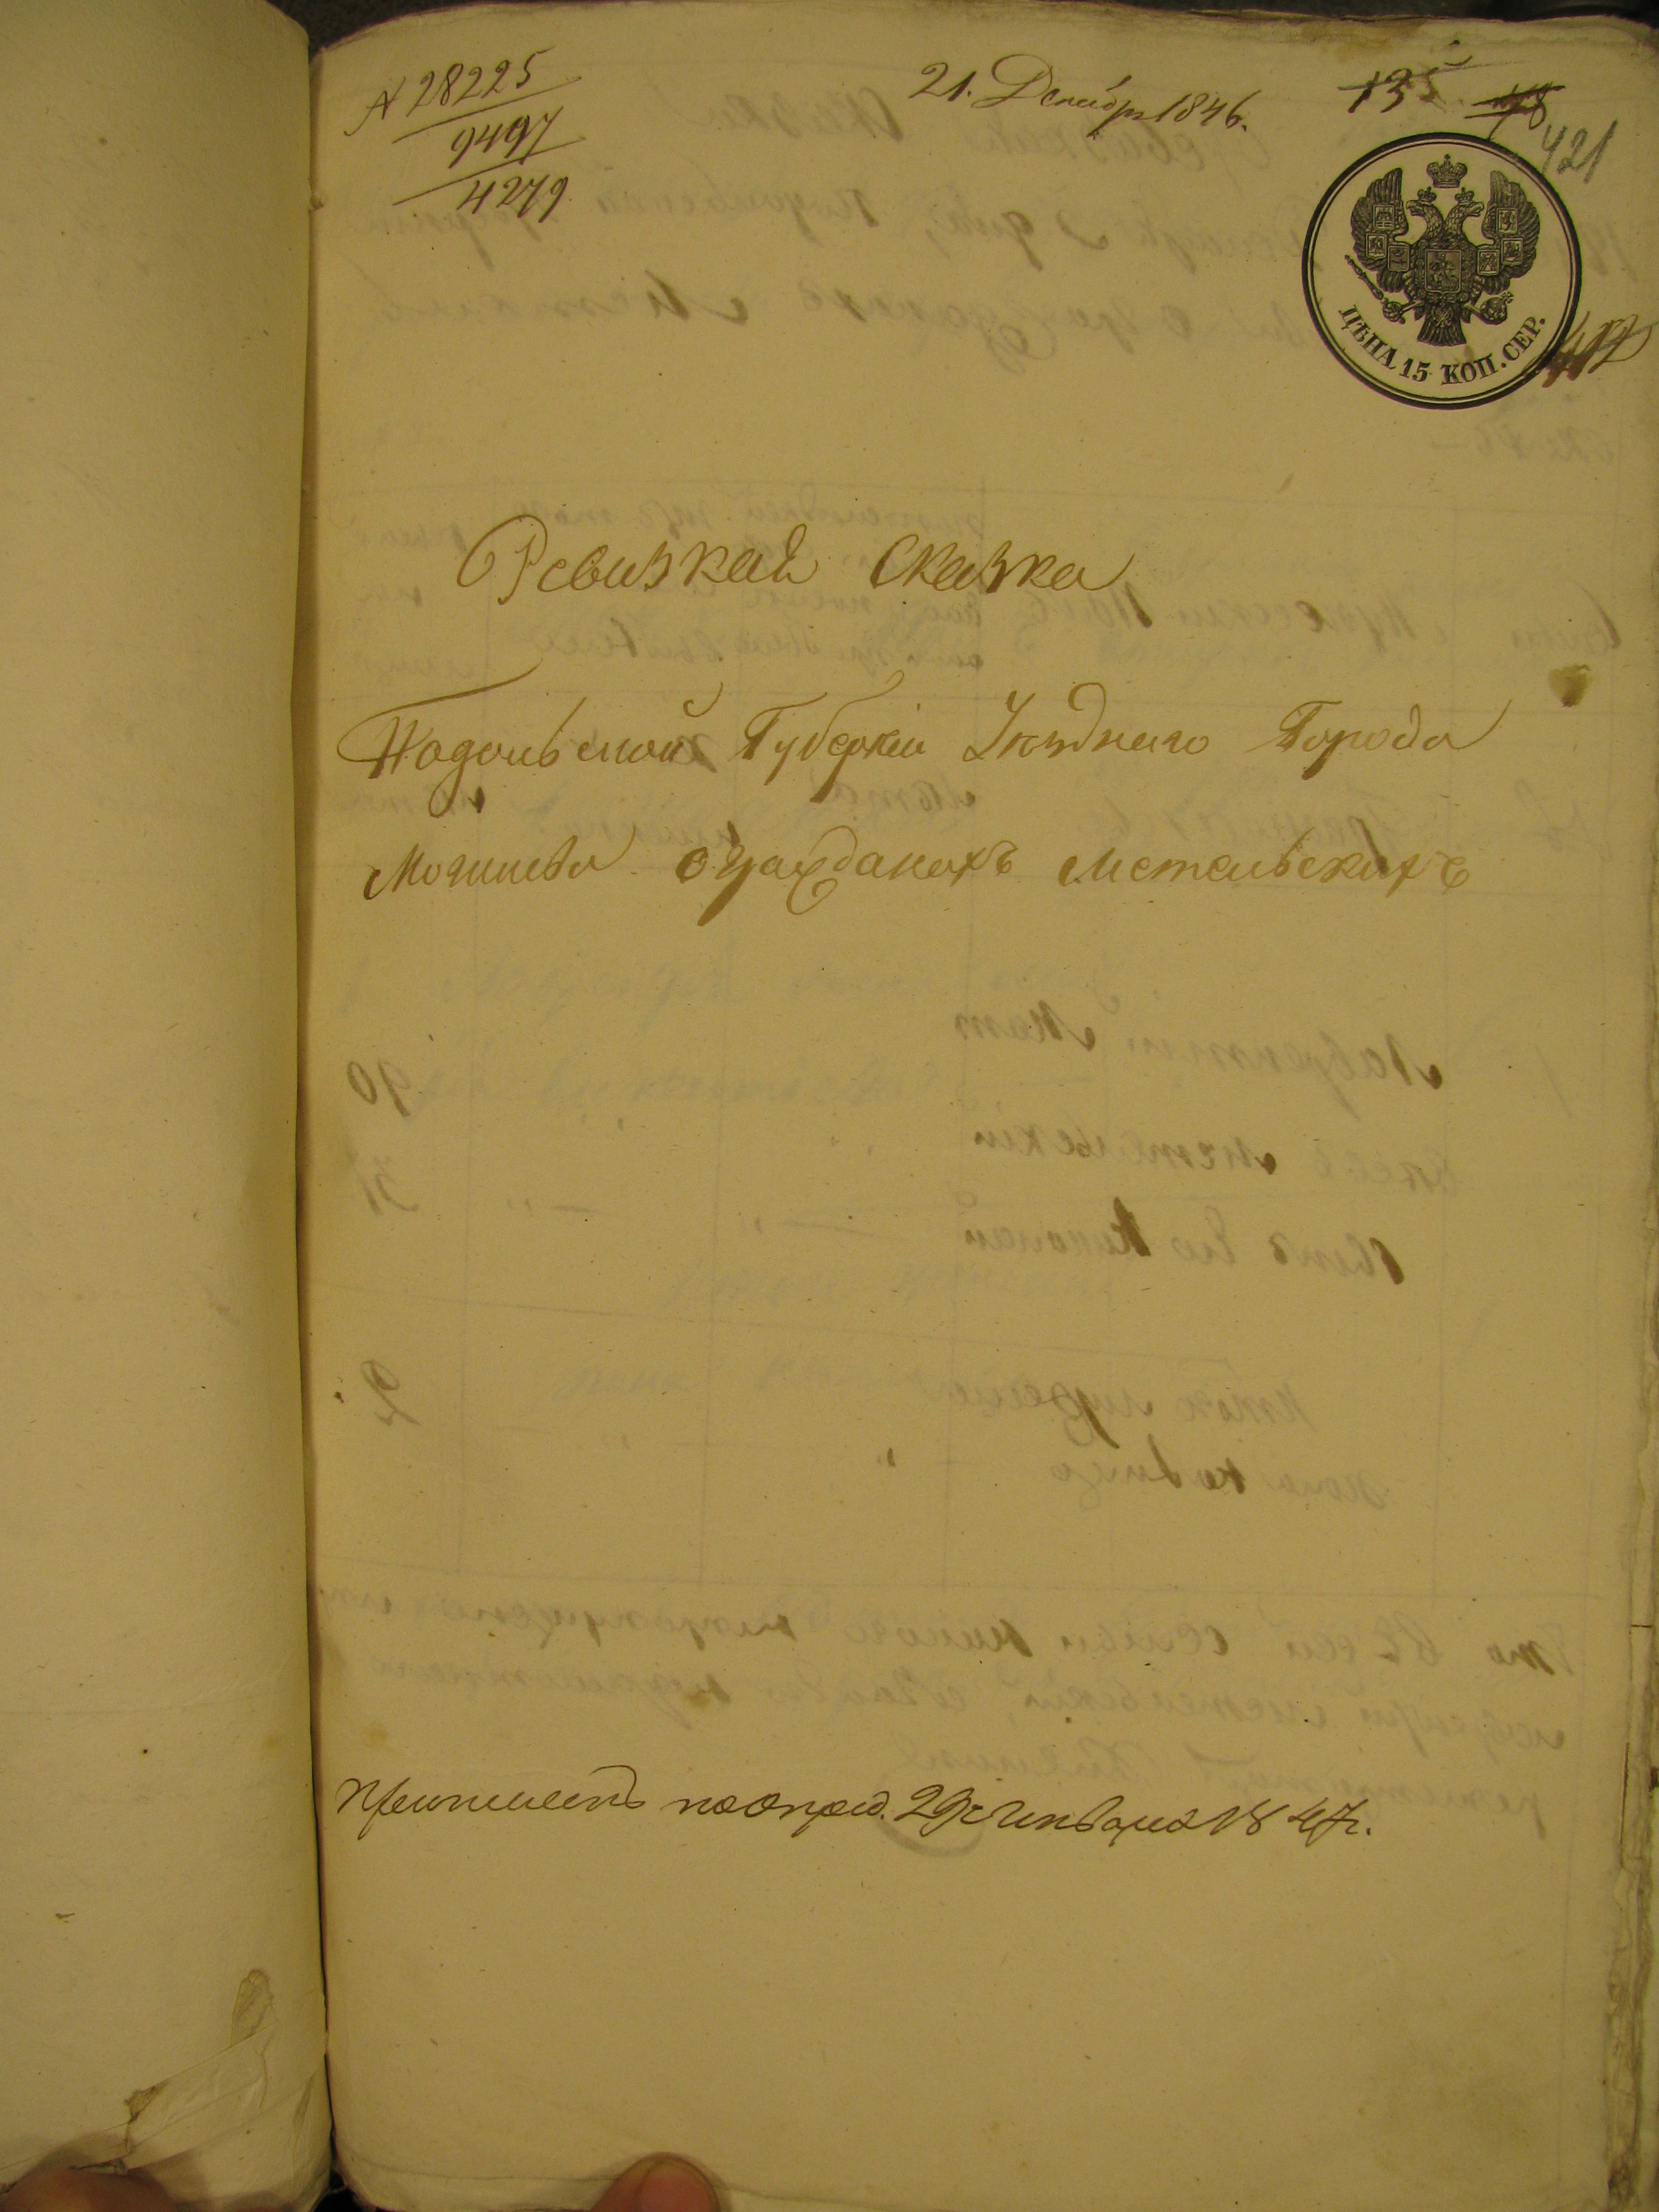 № 28225
9497
4279
21. Декабря 1846.
135
78
421
ЦѢНА 15 КОП. СЕР.
Ревизкая Сказка
Подольской Губерніи Уѣзднаго Города
Могилева о гражданахъ Метельскихъ
по опред. 29 Января 1847 г.